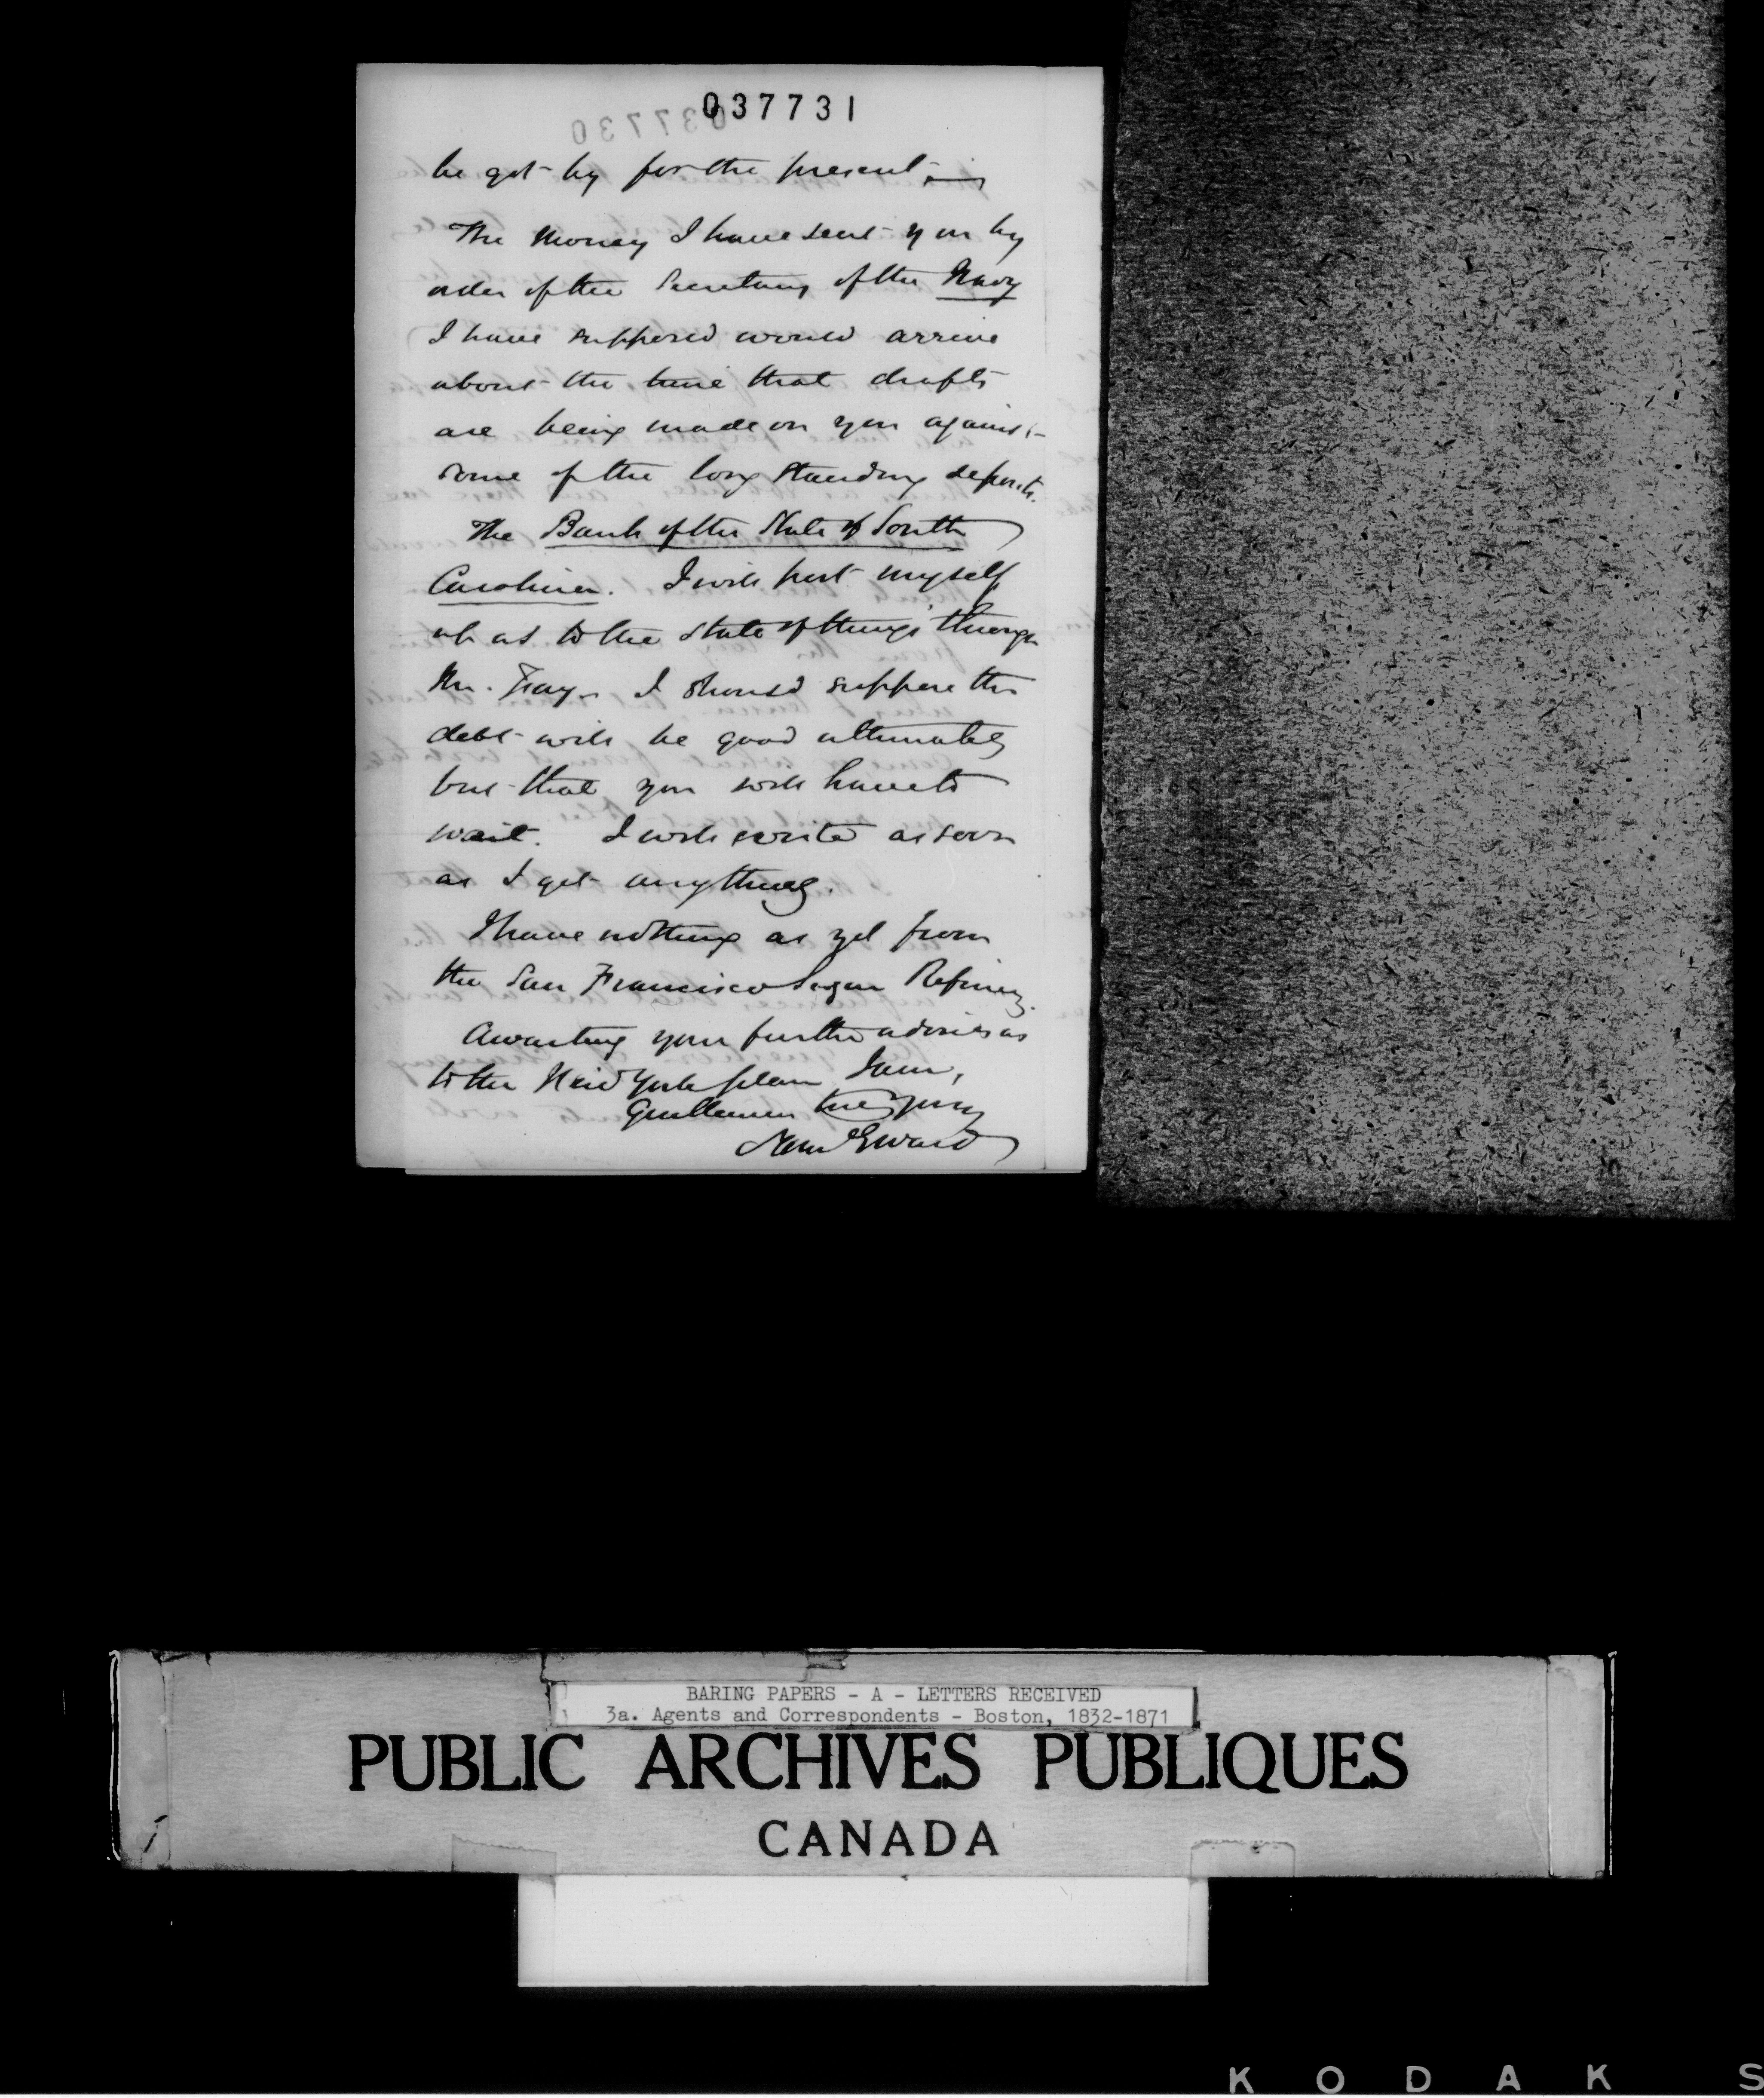 037731
037730
be got by for the present;
The Money I have sent you by
order of the Secretary of the Navy
I have supposed would arrive
about the time that drafts
are being made on you against
some of the long standing deposits.
The Bank of the State of South
Carolina. I will post myself
up as to the state of things through
Mr. Fay. I should suppose the
debt will be good ultimately
but that you will have to
wait. I will write as soon
as I get anything.
I have nothing as yet from
the San Francisco Sugar Refinery.
Awaiting your further advices as
to the New York plan I am,
Gentlemen truly yours
Saml G Ward
BARING PAPERS - A - LETTERS RECEIVED
3a. Agents and Correspondents - Boston, 1832-1871
PUBLIC ARCHIVES PUBLIQUES
CANADA
KODAK S